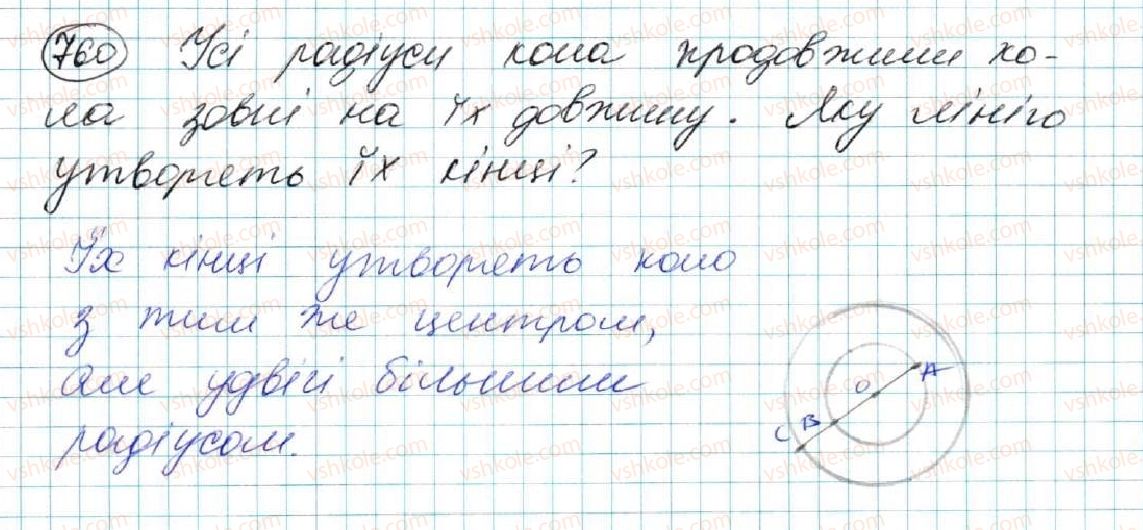 760 Усі радіуси кола продовжили ко-
ла зовні на їх довжину. Яку лінію
утворять їх кінці?
Їх кінці утворять коло
з тим же центром,
але удвічі більшим
радіусом.
O A
C B